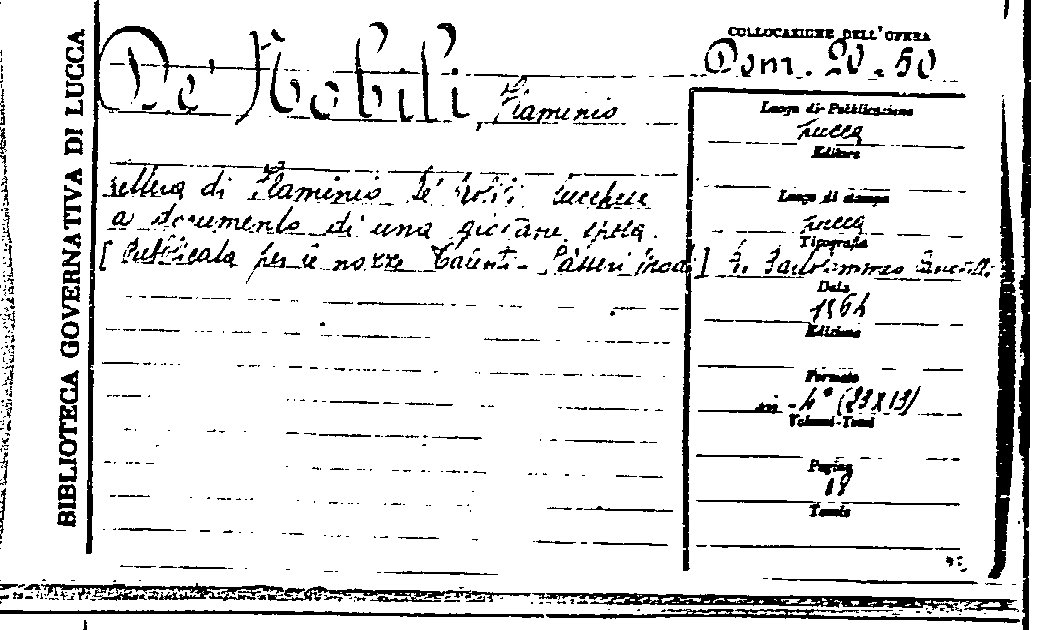 BIBLIOTECA GOVERNATIVA DI LUCCA
De' Nobili, Flaminio
Lettera di Flaminio De' Nobili Lucchese
a documento di una giovane sposa.
[Pubblicata per le nozze - Patteri]
COLLOCAZIONE DELL'OPERA
Dom. 20.50
Luogo di Pubblicazione
Lucca
Editore
Luogo di stampa
Lucca
Tipografia
Data
1864
Edizione
Formato
in-4° (23X13)
Volumi-Tomi
Pagine
18
Tomis